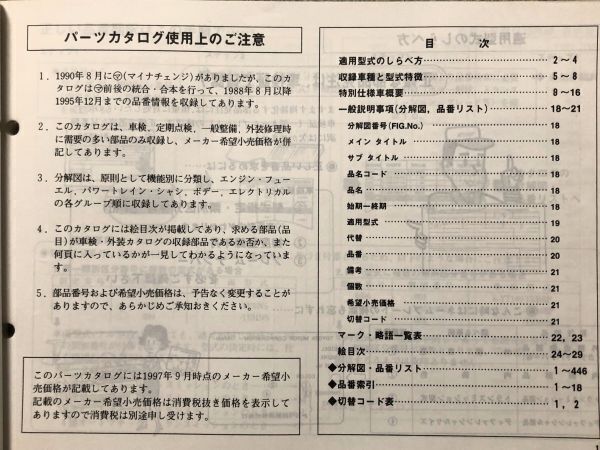 パーツカタログ使用上のご注意
1. 1990年8月に㋮(マイナチェンジ)がありましたが、このカ
タログは㋮前後の統合・合本を行って、1988年8月以降
1995年12月までの品番情報を収録してあります。
2. このカタログは、車検、定期点検、一般整備、外装修理時
に需要の多い部品のみ収録し、メーカー希望小売価格が併
記してあります。
3. 分解図は、原則として機能別に分類し、エンジン・フュー
エル、パワートレイン・シャシ、ボデー、エレクトリカル
の各グループ順に収録してあります。
4. このカタログには絵目次が掲載してあり、求める部品(品
目)が車検・外装カタログの収録部品であるか否か、また
何頁に入っているかが一見してわかるようになっていま
す。
5. 部品番号および希望小売価格は、予告なく変更することが
ありますので、あらかじめご承知おきください。
このパーツカタログには1997年9月時点のメーカー希望小
売価格が記載してあります。
記載のメーカー希望小売価格は消費税抜き価格を表示して
ありますので消費税は別途申し受けます。
目 次
適用型式のしらべ方 2〜4
収録車種と型式特徴 5〜8
特別仕様車概要 8〜16
一般説明事項(分解図、品番リスト) 18〜21
分解図番号(FIG.No.) 18
メイン タイトル 18
サブ タイトル 18
品名コード 18
品名 18
始期―終期 18
適用型式 19
代替 20
品番 20
備考 21
個数 21
希望小売価格 21
切替コード 21
マーク・略語一覧表 22, 23
絵目次 24〜29
◆分解図・品番リスト 1〜446
◆品番索引 1〜18
◆切替コード表 1, 2
1